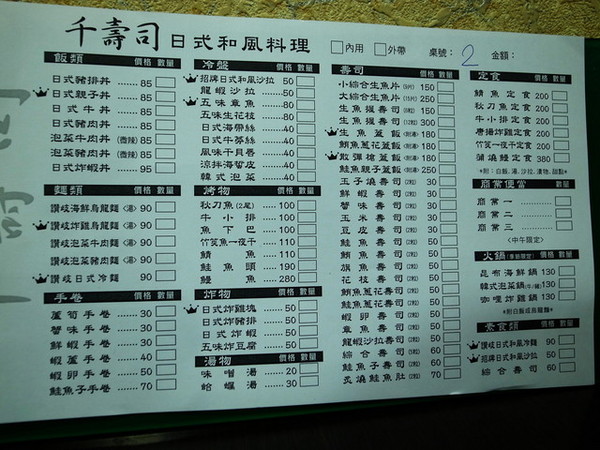 千壽司日式和風料理 □內用 □外帶 桌號: 2 金額:
飯類 價格 數量
日式豬排丼 ...... 85
日式親子丼 ...... 85
日式牛丼 ...... 85
日式豬肉丼 ...... 85
泡菜牛肉丼(微辣) 85
泡菜豬肉丼(微辣) 85
日式炸蝦丼 ...... 95
麵類 價格 數量
讚岐海鮮烏龍麵<湯> 90
讚岐炸雞烏龍麵<湯> 90
讚岐泡菜牛肉麵<湯> 90
讚岐泡菜豬肉麵<湯> 90
讚岐日式冷麵 90
手卷 價格 數量
蘆筍手卷 ...... 30
蟹味手卷 ...... 30
鮮蝦手卷 ...... 30
蝦蘆手卷 ...... 40
蝦卵手卷 ...... 50
鮭魚子手卷 ...... 70
冷盤 價格 數量
招牌日式和風沙拉 50
龍蝦沙拉 ...... 50
五味章魚 ...... 80
五味生花枝 ...... 80
日式海帶絲 ...... 40
日式牛蒡絲 ...... 40
風味干貝唇 ...... 40
涼拌海蜇皮 ...... 40
韓式泡菜 ...... 40
烤物 價格 數量
秋刀魚(2尾) ...... 100
牛小排 ...... 100
魚下巴 ...... 100
竹筴魚一夜干 ...... 110
鯖魚 ...... 110
鮭魚頭 ...... 190
鰻魚 ...... 280
炸物 價格 數量
日式炸雞塊 ...... 50
日式炸豬排 ...... 50
日式炸蝦 ...... 50
五味炸豆腐 ...... 50
湯物 價格 數量
味噌湯 ...... 20
蛤蠣湯 ...... 30
壽司 價格 數量
小綜合生魚片(9片) 150
大綜合生魚片(15片) 250
生魚握壽司(5粒) 150
生魚握壽司(8粒) 250
生魚蓋飯(附湯) 180
鮪魚蔥花蓋飯(附湯) 140
散彈槍蓋飯(附湯) 180
鮭魚親子蓋飯(附湯) 250
玉子燒壽司(2粒) 30
鮮蝦壽司(2粒) 30
蟹味壽司(2粒) 30
玉米壽司(2粒) 30
豆皮壽司(2粒) 30
鮭魚壽司(2粒) 50
鮪魚壽司(2粒) 50
旗魚壽司(2粒) 50
花枝壽司(2粒) 50
鮪魚蔥花壽司(2粒) 50
鮭魚蔥花壽司(2粒) 50
蝦卵壽司(2粒) 50
章魚壽司(2粒) 50
龍蝦沙拉壽司(2粒) 50
綜合壽司(6粒) 60
鮭魚子壽司(2粒) 70
炙燒鮭魚肚(2粒) 70
定食 價格 數量
鯖魚定食 200
秋刀魚定食 200
牛小排定食 200
唐揚炸雞定食 200
竹筴一夜干定食 200
蒲燒鰻定食 380
*附:白飯、湯、沙拉、漬物、甜點*
商業便當 價格 數量
商業一 ......
商業二 ......
商業三 ......
<中午限定>
火鍋(季節限定) 價格 數量
昆布海鮮鍋 130
韓式泡菜鍋(牛/豬) 130
咖哩炸雞鍋 130
*附白飯或烏龍麵*
素食類 價格 數量
讚岐日式和風冷麵 90
招牌日式和風沙拉 50
綜合壽司 ...... 60